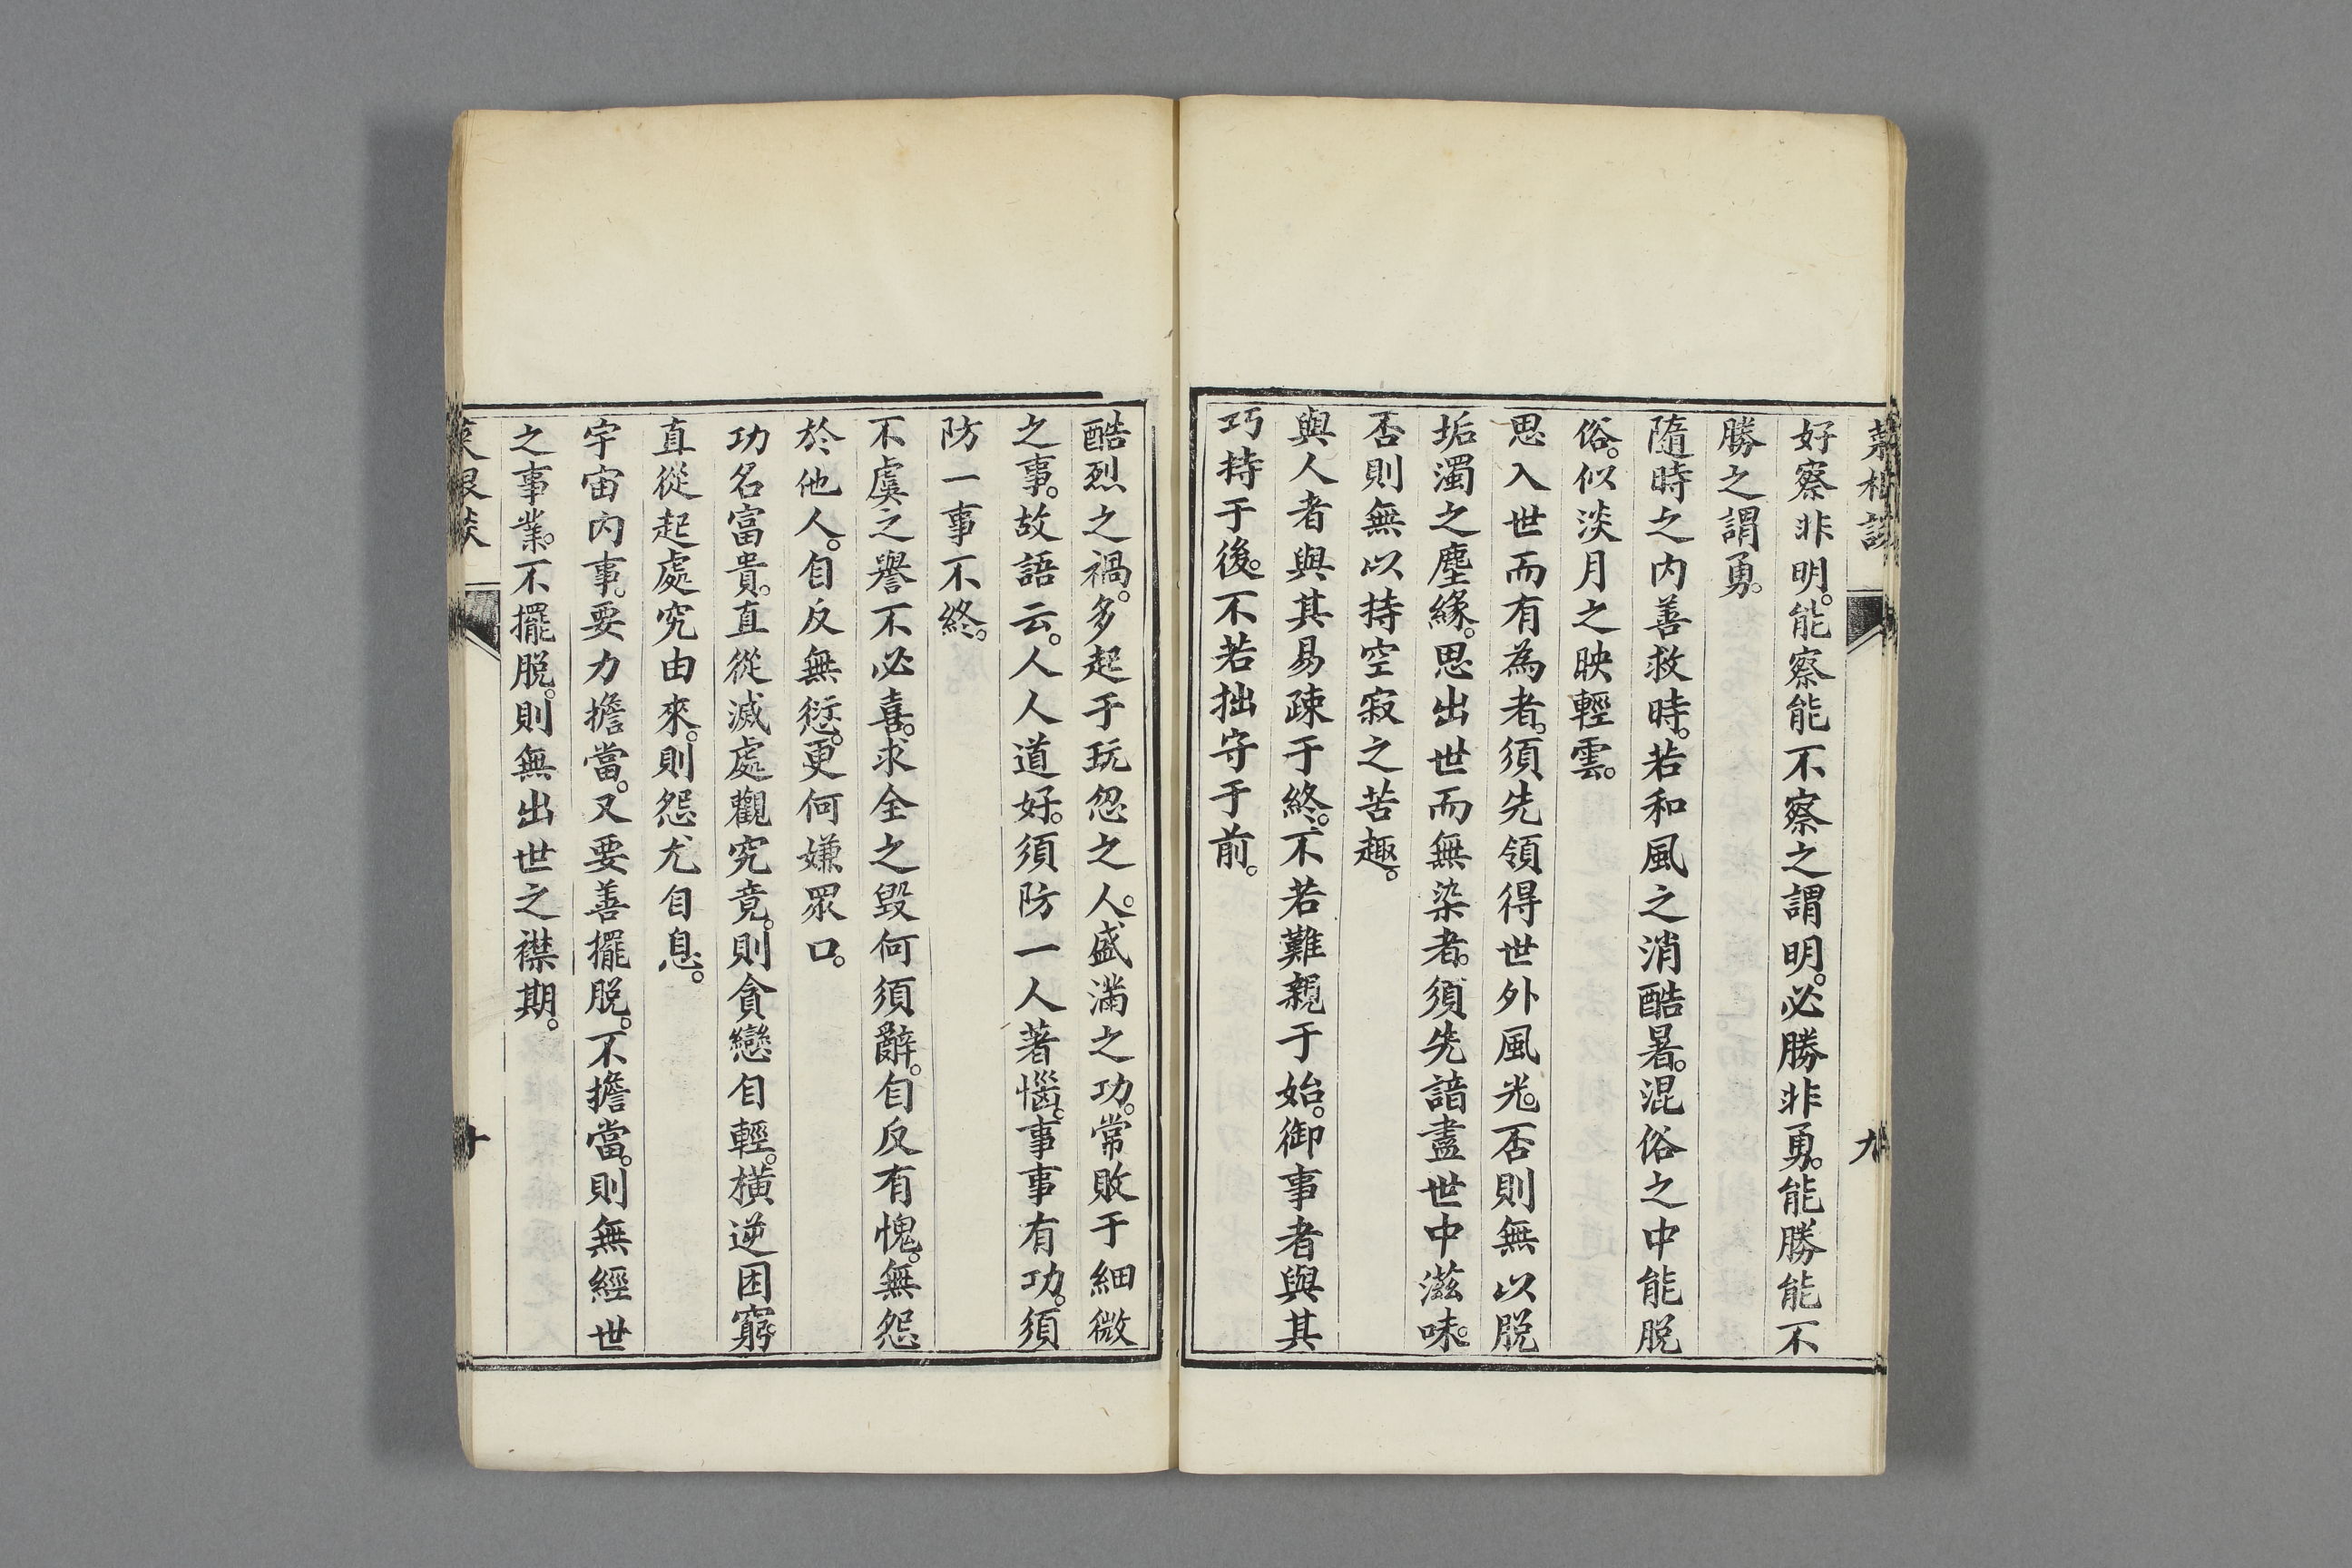 菜根談
九
好察非明。能察能不察之謂明。必勝非勇。能勝能不
勝之謂勇。
隨時之内善救時。若和風之消酷暑。混俗之中能脱
俗。似淡月之映輕雲。
思入世而有為者。須先領得世外風光。否則無以脱
垢濁之塵緣。思出世而無染者。須先諳盡世中滋味。
否則無以持空寂之苦趣。
與人者與其易疎于終。不若難親于始。御事者與其
巧持于後。不若拙守于前。
酷烈之禍。多起于玩忽之人。盛滿之功。常敗于細微
之事。故語云。人人道好。須防一人著惱。事事有功。須
防一事不終。
不虞之譽不必喜。求全之毀何須辭。自反有愧。無怨
於他人。自反無愆。更何嫌眾口。
功名富貴。直從滅處觀究竟。則貪戀自輕。橫逆困窮。
直從起處究由來。則怨尤自息。
宇宙内事。要力擔當。又要善擺脱。不擔當。則無經世
之事業。不擺脱。則無出世之襟期。
菜根談
十